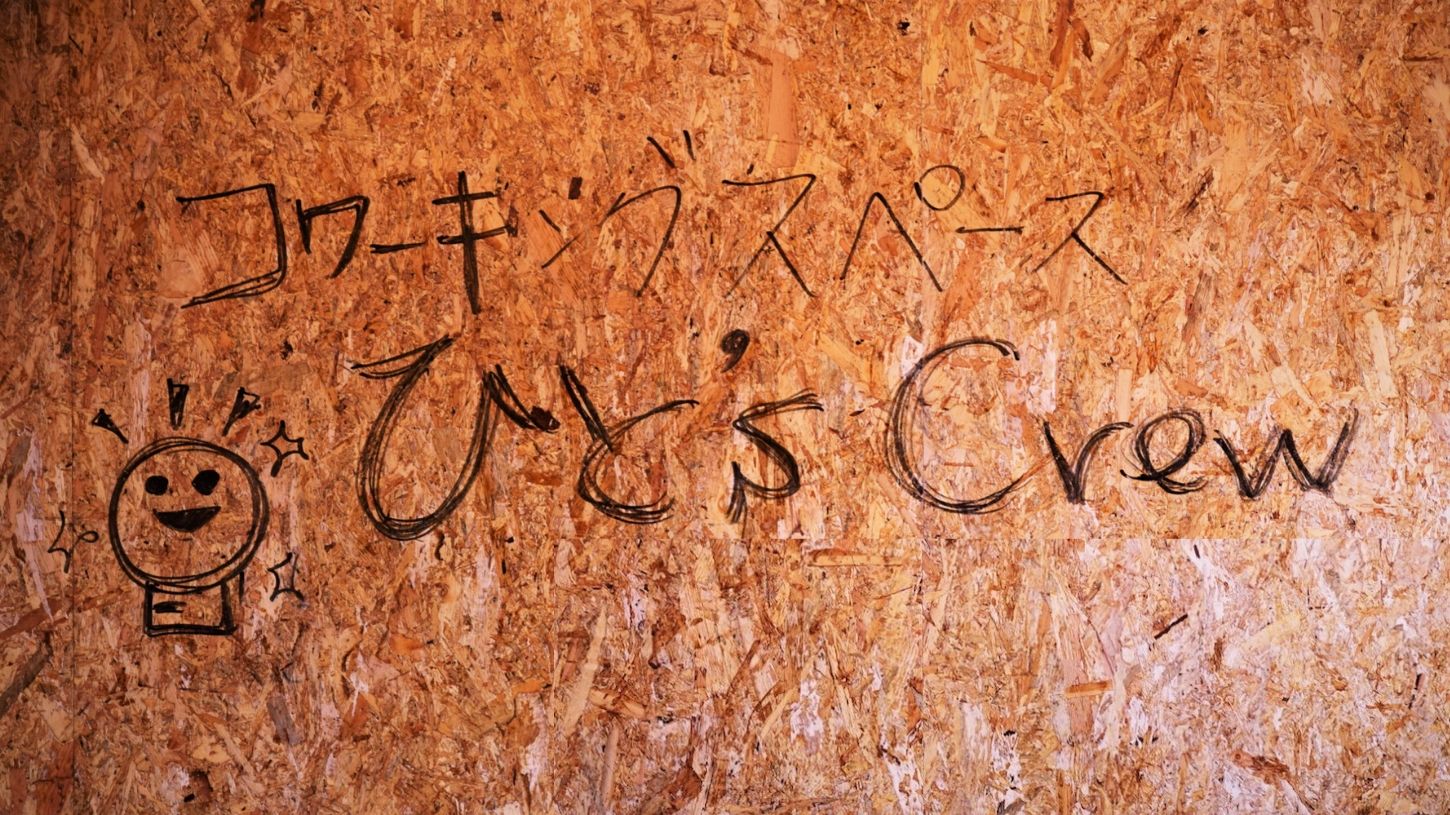 コワーキングスペース
ひと's Crew